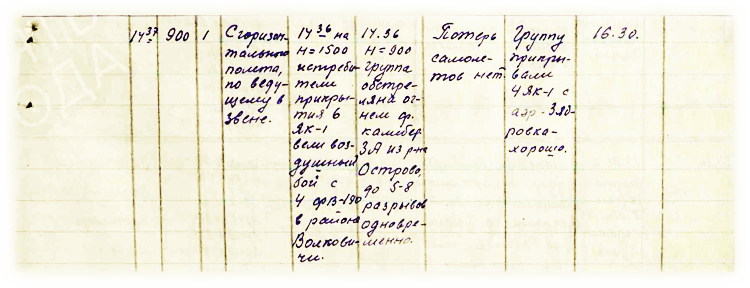 14 37
900
1
С горизон-
тального
полета,
по веду-
щему в
звене.
14 36 на
H=1500
истреби-
тели
прикры-
тия 6
ЯК-1
вели воз-
душный
бой с
4 ФВ-190
в районе
Волкови-
чи.
14.36
H=900
группа
обстре-
ляна ог-
нем ср.
калибер
ЗА из р-на
Острова,
до 5-8
разрывов
одновре-
менно.
Потерь
самоле-
тов нет.
Группу
прикры-
вали
4 ЯК-1 с
аэр.
ровка-
хорошо.
16.30.